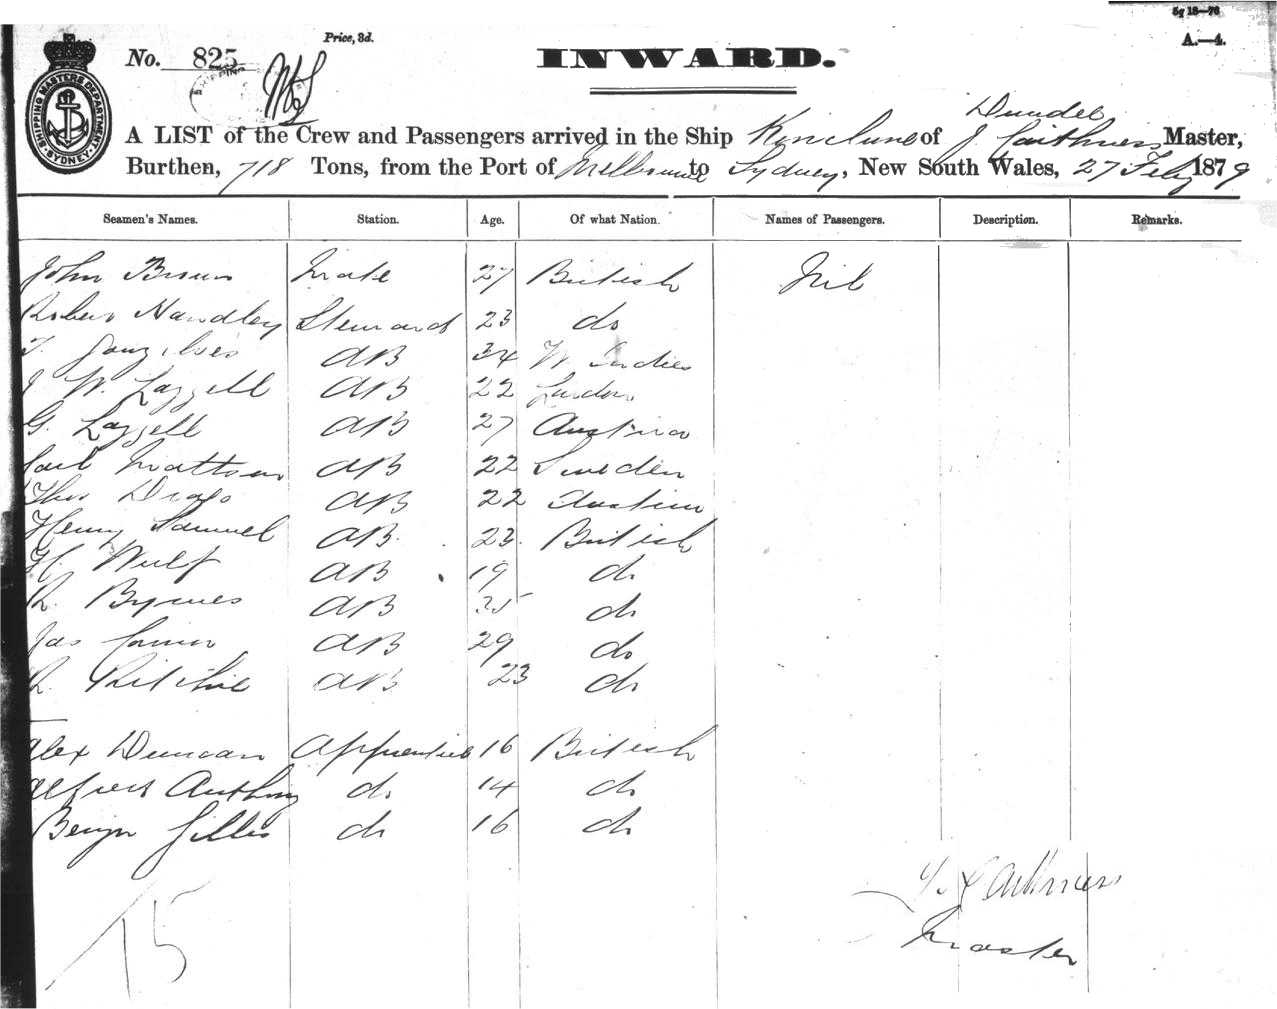 5g 18—76
Price, 3d.
A.—4.
No. 825
INWARD.
SHIPPING MASTERS DEPARTMENT
SYDNEY
SHIPPING
Dundee
A LIST of the Crew and Passengers arrived in the Ship Kinclune of J Caithness Master,
Burthen, 718 Tons, from the Port of Melbourne to Sydney, New South Wales, 27 Feby 1879
Seamen's Names. Station. Age. Of what Nation. Names of Passengers. Description. Remarks.
John Brown Mate 27 British Nil
Robert Handley Steward 23 do
AB 34 W. Indies
J W. Lazzell AB 22 London
G. Lazzell AB 27 Austria
Carl Mattson AB 22 Sweden
Thos AB 22 Austria
Henry Samuel AB 23 British
H. Wulf AB 19 do
R. Byrnes AB 35 do
Jas AB 29 do
R. Ritchie AB 23 do
Alex Duncan Apprentice 16 British
Alfred Anthony do 14 do
Benjn Gillis do 16 do
J. Caithness
Master
15